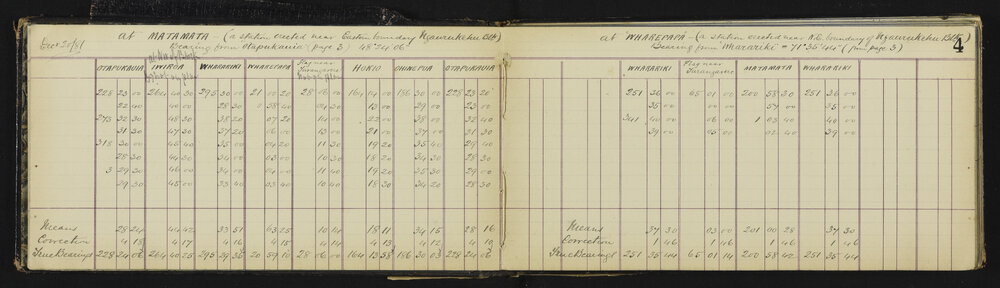 Decr 20/81
at MATAMATA - (a station erected near Eastern boundary Ngaurukehu Blk)
Bearing from Otapukauia - page 3) 48° 24' 06"
OTAPUKAUIA IWIROA WHARARIKI WHAREPAPA Flag near Turangarere HOKIO OHINEPUA OTAPUKAUIA
228 23 00 264 40 30 295 30 00 21 00 20 28 06 00 164 14 00 186 30 00 228 23 20
22 40 40 00 28 30 0 58 40 04 30 13 00 29 00 23 00
273 32 30 48 30 38 20 07 20 14 00 22 00 38 00 32 40
31 30 47 30 37 20 06 00 13 00 21 00 37 00 31 30
318 30 00 45 40 35 00 04 20 11 30 19 20 35 40 29 40
28 30 44 30 34 00 03 00 10 30 18 20 34 30 28 30
3 29 30 46 00 34 00 04 00 11 40 19 20 35 30 29 30
29 30 45 00 33 40 03 40 10 30 18 30 34 20 28 30
Means 28 24 44 42 33 51 63 25 10 14 18 11 34 15 28 16
Correction 4 18 4 17 4 16 4 15 4 14 4 13 4 12 4 10
True Bearings 228 24 06 264 40 25 295 29 35 20 59 10 28 06 00 164 13 58 186 30 03 228 24 06
at WHAREPAPA - (a station erected near N.E. boundary of Ngaurukehu Blk)
Bearing from Mararike = 71° 35' 44" (from page 3)
4
WHARARIKI Flag near Turangarere MATAMATA WHARARIKI
251 36 00 65 01 00 200 58 30 251 36 00
35 00 00 00 57 00 35 00
341 40 00 06 00 1 03 40 40 00
39 00 05 00 02 40 39 00
Means 37 30 03 00 201 00 28 37 30
Correction 1 46 1 46 1 46 1 46
True Bearings 251 35 44 65 01 14 200 58 42 251 35 44